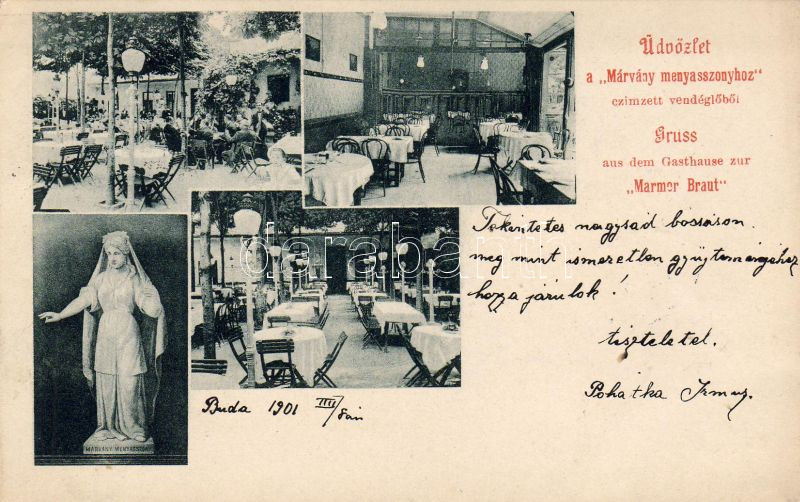 Üdvözlet
a „Márvány menyasszonyhoz"
czimzett vendéglőből
Gruss
aus dem Gasthause zur
„Marmor Braut"
Tekintetes nagysád bossáson
meg mint ismeretlen gyüjteményéhez
hozza járulok!
tisztelettel.
Pohatka
Buda 1901
MÁRVÁNY MENYASSZONY
darabanth